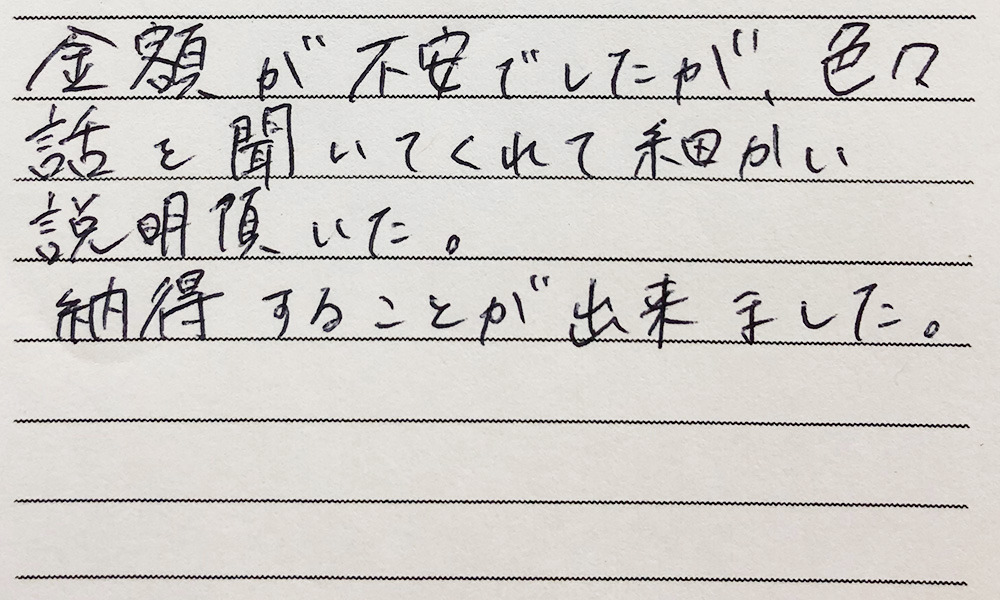 金額が不安でしたが、色々
話を聞いてくれて細かい
説明頂いた。
納得することが出来ました。